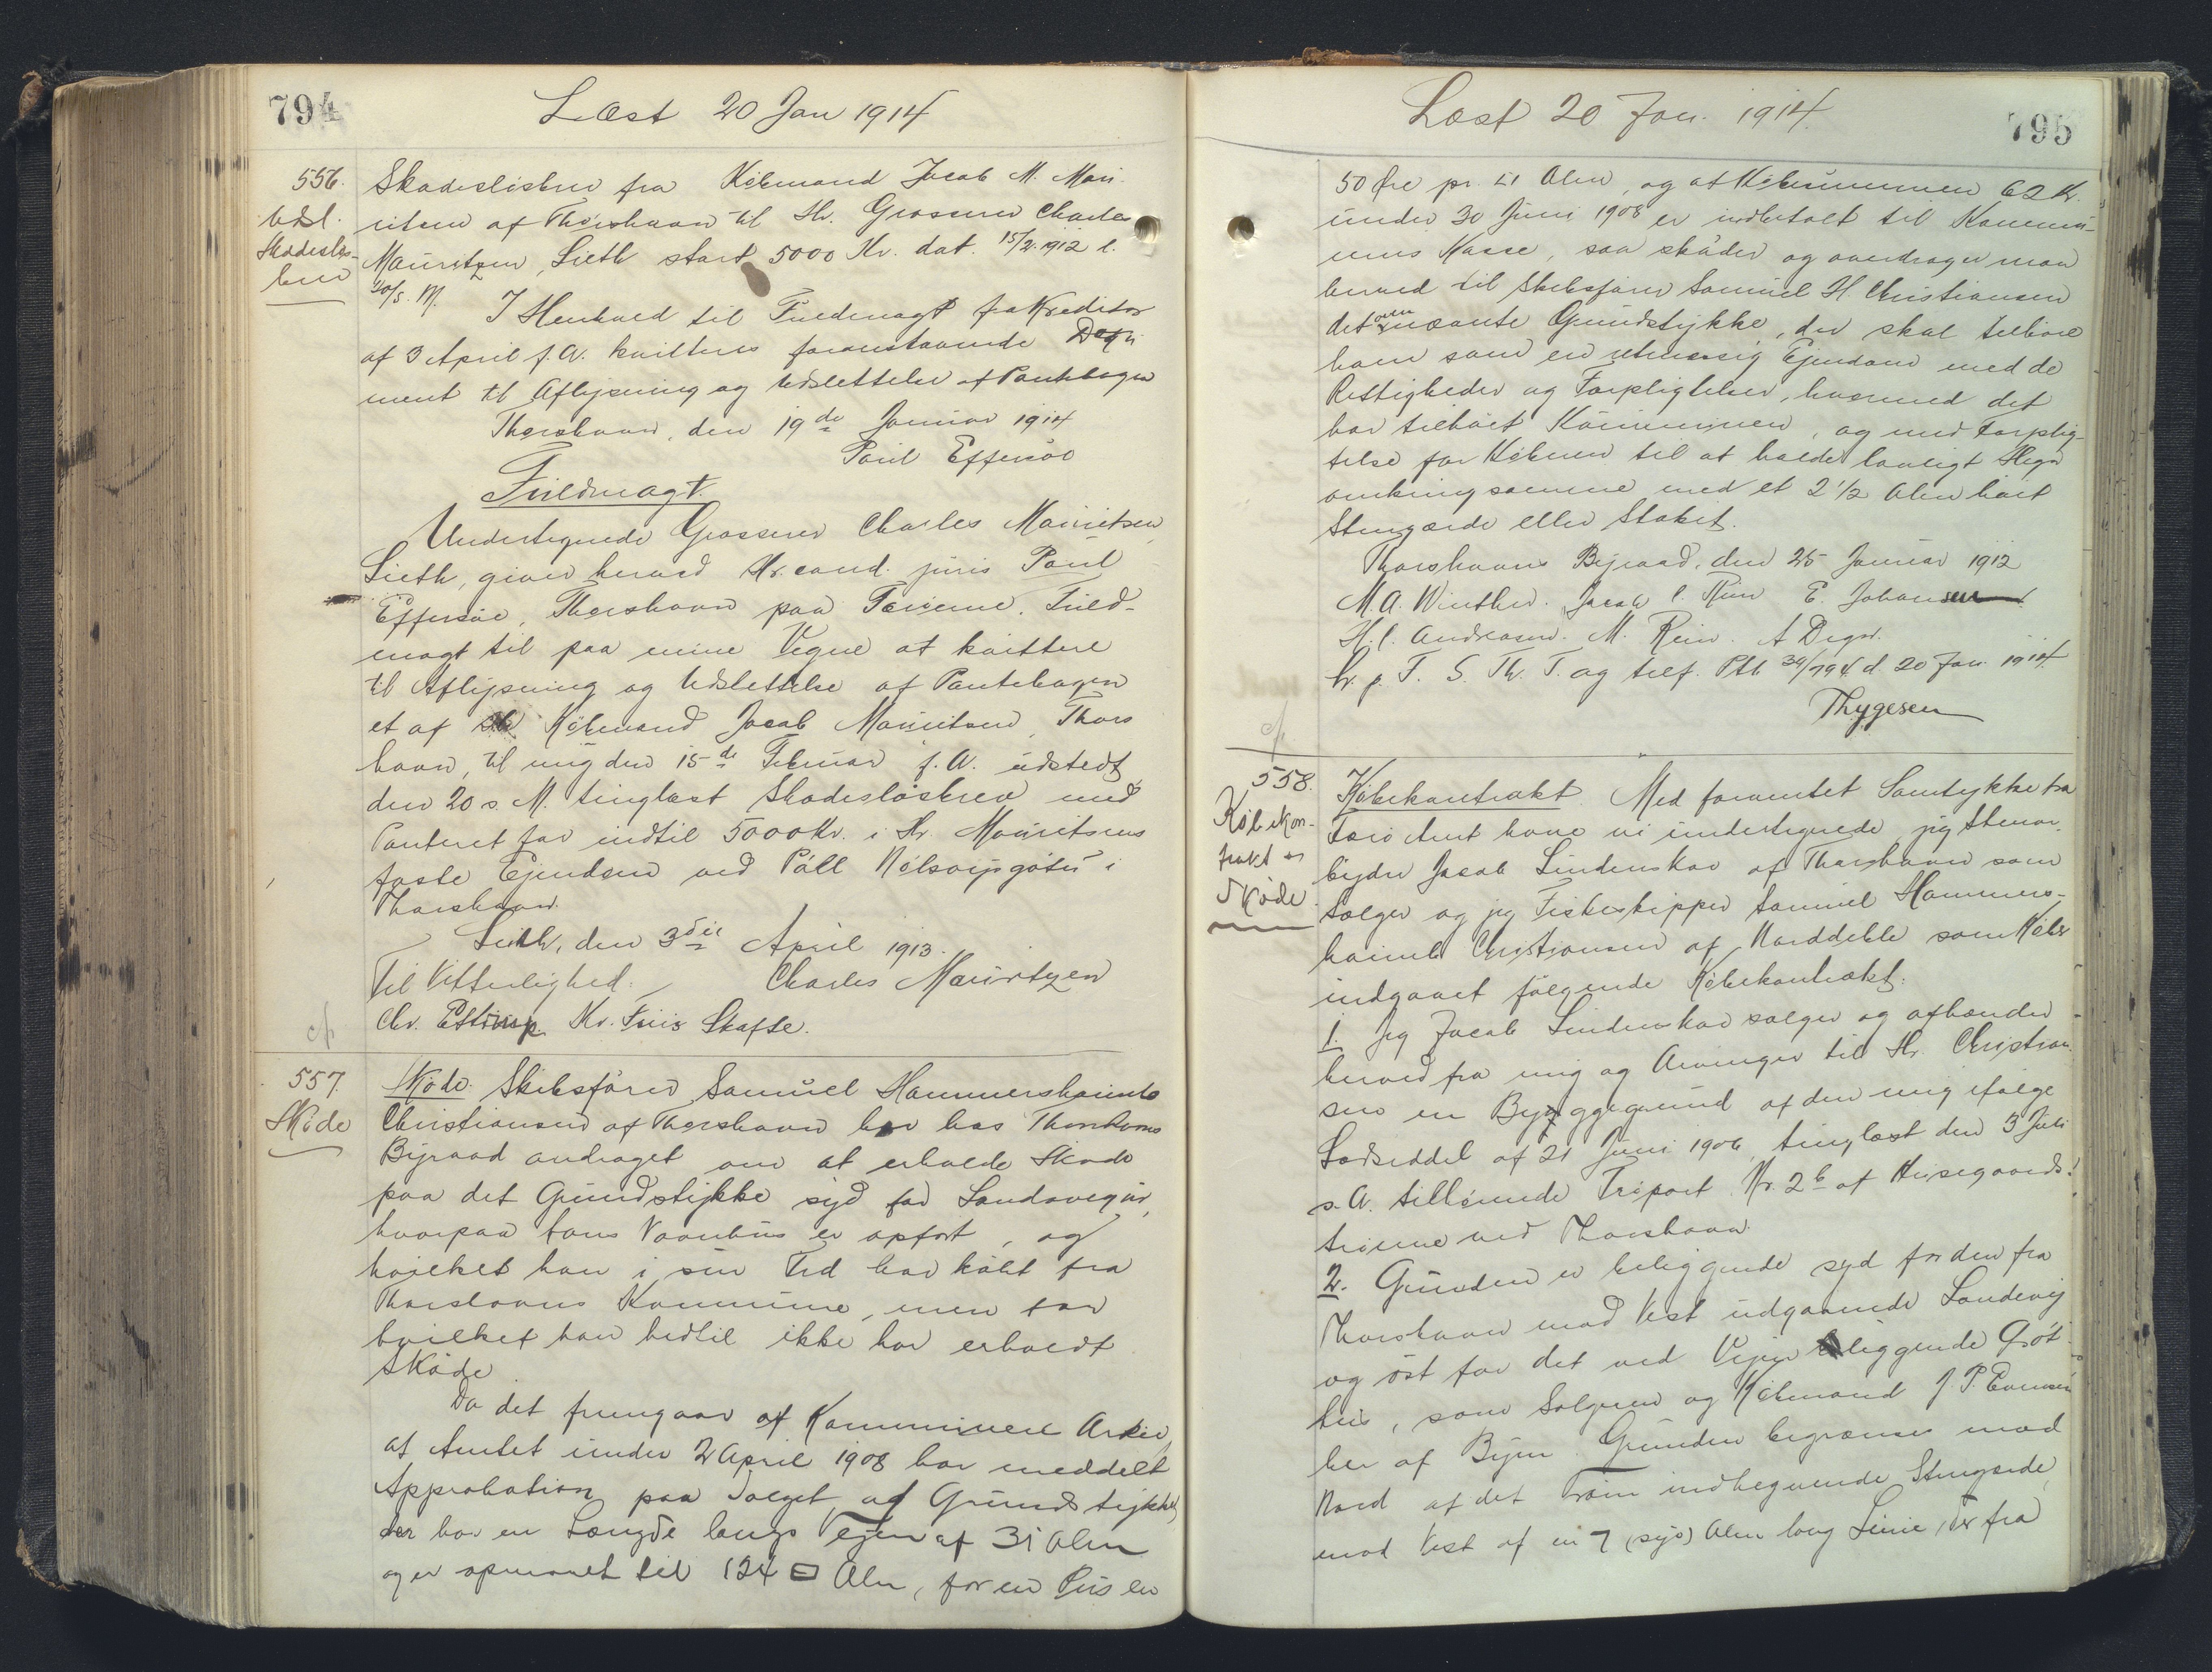 794
Læst 20 Jan 1914
556.
Udsl.
Skadesløs-
brev
Skadesløsbrev fra Købmand Jacob M. Mau-
ritsen af Thorshavn til Hr. Grosserer Charles
Mauritzen, Lieth stort 5000 Kr. dat. 15/2. 1912 l.
20/s. M.
I Henhold til Fuldmagt fra Kreditor
af 3 April f. A. kvitteres foranstaaende Doku-
ment til Aflysning og Udslettelse af Pantebogen
Thorshavn, den 19de Januar 1914
Poul Effersöe
Fuldmagt.
Undertegnede Grosserer Charles Mauritsen,
Lieth, giver herved Hr. cand. juris Poul
Effersöe, Thorshavn paa Færøerne, Fuld-
magt til paa mine Vegne at kvittere
til Aflysning og Udslettelse af Pantebogen
et af Købmand Jacob Mauritsen, Thors
havn, til mig den 15de Februar f. A. udstedt,
den 20 s. M. tinglæst Skadesløsbrev med
Panteret for indtil 5000 Kr. i Hr. Mauritsens
faste Ejendom ved Páll Nólsoyjgøtu i
Thorshavn.
Leith, den 3die April 1913.
Til Vitterlighed: Charles Mauritzen
Chr. Ettrup Kr. Friis Skafte.
557.
Skøde
Skøde. Skibsfører Samuel Hammershaimb
Christiansen af Thorshavn har hos Thorshavns
Byraad andraget om at erholde Skøde
paa det Grundstykke syd for Landavegur,
hvorpaa hans Vaanhus er opført, og
hvilket han i sin Tid har købt fra
Thorshavns Kommune, men for
hvilket han hidtil ikke har erholdt
Skøde
Da det fremgaar af Kommunens Arkiv,
at Amtet under 2 April 1908 har meddelt
Approbation paa Salget af Grundstykket,
der har en Længde langs Vejen af 31 Alen
og er opmaalt til 124 □ Alen, for en Pris en
795
Læst 20 Jan. 1914.
50 Øre pr. □ Alen, og at Købesummen 62 Kr.
under 30 Juni 1908 er indbetalt til Kommu-
nens Kasse, saa skøder og overdrager man
herved til Skibsfører Samuel H. Christiansen
det ovennævnte Grundstykke, der skal tilhøre
ham som en retmæssig Ejendom med de
Rettigheder og Forpligtelser, hvormed det
har tilhørt Kommunen, og med Forplig-
telse for Køberen til at holde lovligt Hegn
omkring samme med et 2½ Alen højt
Stengærde eller Staket.
Thorshavns Byraad, den 25 Januar 1912
M. A. Winther. Jacob C. Rein E. Johansen
H. C. Andreasen. M. Rein. A Degn.
Kv. p. T. S. Th. T. og tilf. Ptb 34/794 d. 20 Jan. 1914.
Thygesen
558.
Købekon-
trakt
Skøde
Købekontrakt. Med foranstet Samtykke fra
Færø Amt have vi undertegnede, jeg Stenar-
bejder Jacob Lindenskov af Thorshavn som
Sælger og jeg Fiskeskipper Samuel Hammers-
haimb Christiansen af Norddeble som Køber
indgaaet følgende Købekontrakt.
1. Jeg Jacob Lindenskov sælger og afhænder
herved fra mig og Arvinger til Hr. Christian-
sen en Byggegrund af den mig ifølge
Lodseddel af 21 Juni 1906, tinglæst den 3 Juli
s. A. tilhørende Trøpart Nr. 2b af Husegaards-
trøerne ved Thorshavn.
2. Grunden er beliggende syd for den fra
Thorshavn mod Vest udgaaende Landevej
og øst for det ved Vejen liggende Grót-
hus, som Sælgeren og Købmand J. P. Evensen
her af Byen. Grunden begrænses mod
Nord af det Trøen indhegnende Stengærde,
mod Vest af en 7 (syv) Alen lang Linie, der fra